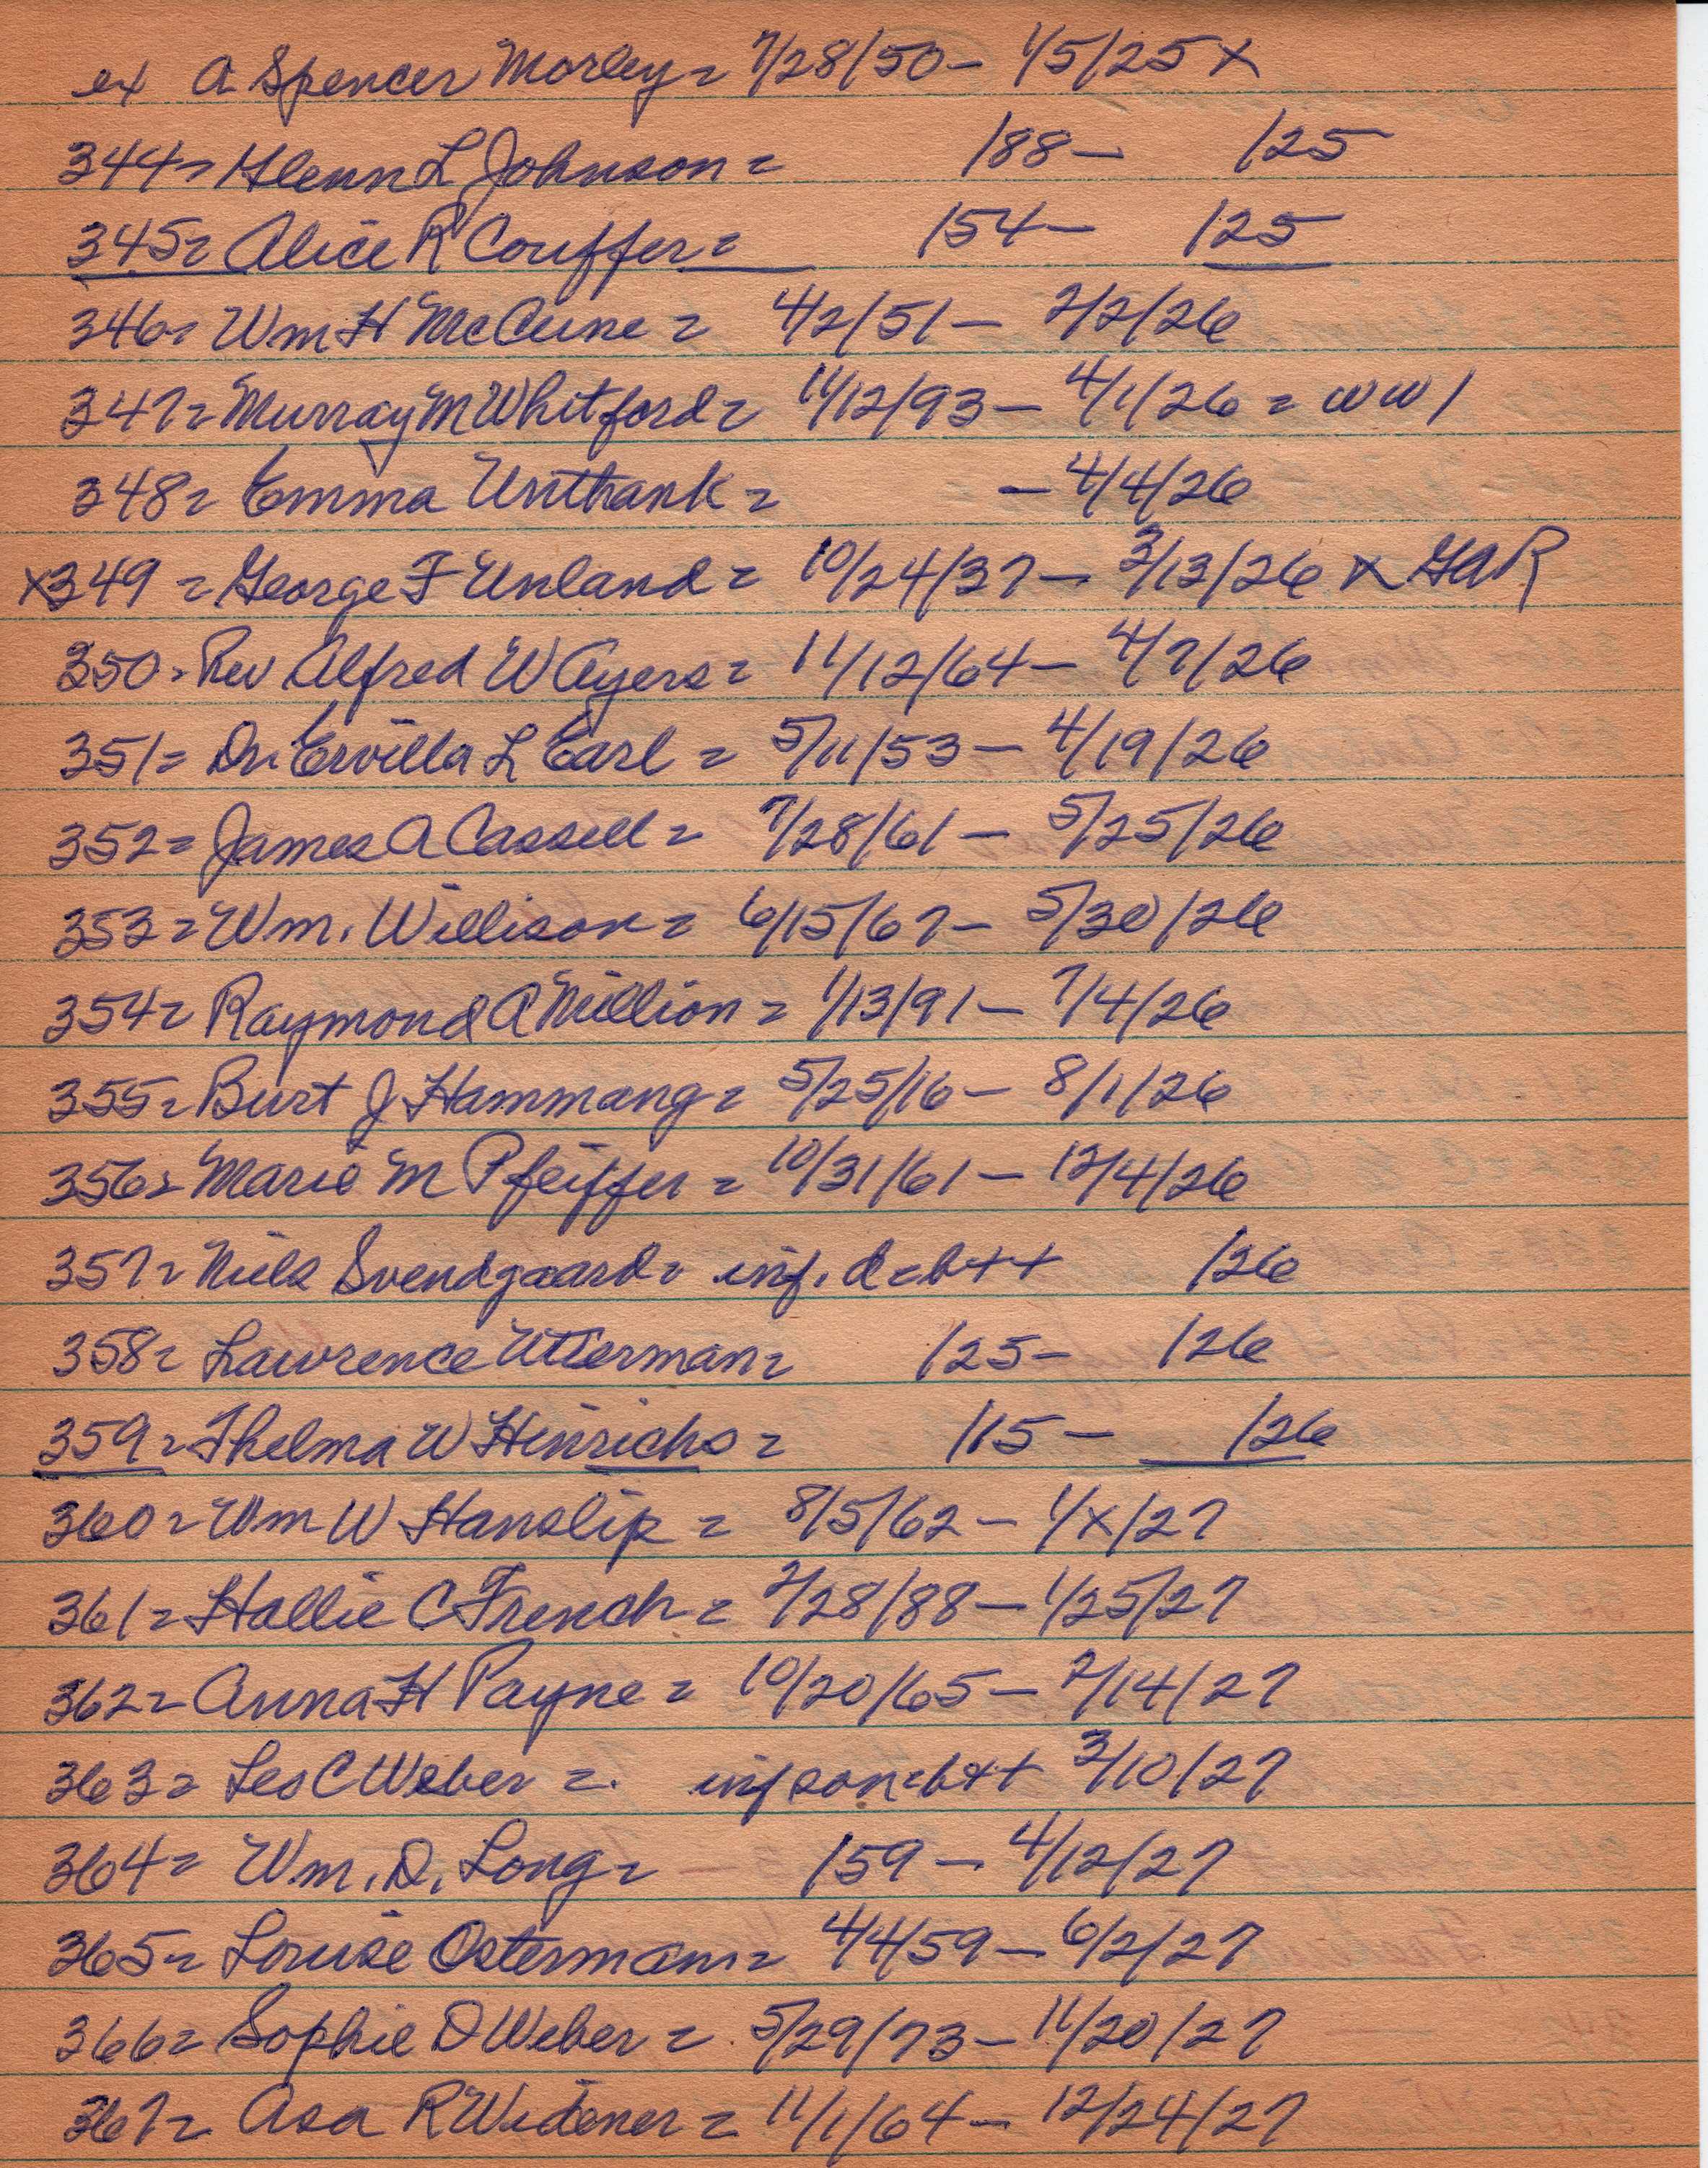 ex A Spencer Morley = 7/28/50 - 1/5/25 x
344 = Glenn L Johnson = /88 - /25
345 = Alice R Couffer = /54 - /25
346 = Wm H McCune = 4/2/51 - 2/2/26
347 = Murray M Whitford = 11/12/93 - 4/1/26 = WW1
348 = Emma Unthank = - 4/4/26
x349 = George F Unland = 10/24/37 - 3/13/26 x GAR
350 = Rev Alfred W Ayers = 11/12/64 - 4/7/26
351 = Dr. Ervilla L Earl = 5/11/53 - 4/19/26
352 = James A Cassell = 7/28/61 - 5/25/26
353 = Wm. Willison = 6/15/67 - 5/30/26
354 = Raymond A Million = 1/13/91 - 7/4/26
355 = Burt J Hammang = 5/25/16 - 8/1/26
356 = Marie M Pfeiffer = 10/31/61 - 12/4/26
357 = Niels Svendgaard = inf. d = b++ /26
358 = Lawrence Utterman = /25 - /26
359 = Thelma W Hinrichs = /15 - /26
360 = Wm W Hanslip = 8/5/62 - 1/x/27
361 = Hallie C French = 2/28/88 - 1/25/27
362 = Anna H Payne = 10/20/65 - 2/14/27
363 = Leo C Weber = . inf son = b++ 3/10/27
364 = Wm. D. Long = /59 - 4/12/27
365 = Louise Ostermann = 4/4/59 - 6/2/27
366 = Sophie D Weber = 5/29/73 - 11/20/27
367 = Asa R Widener = 11/1/64 - 12/24/27